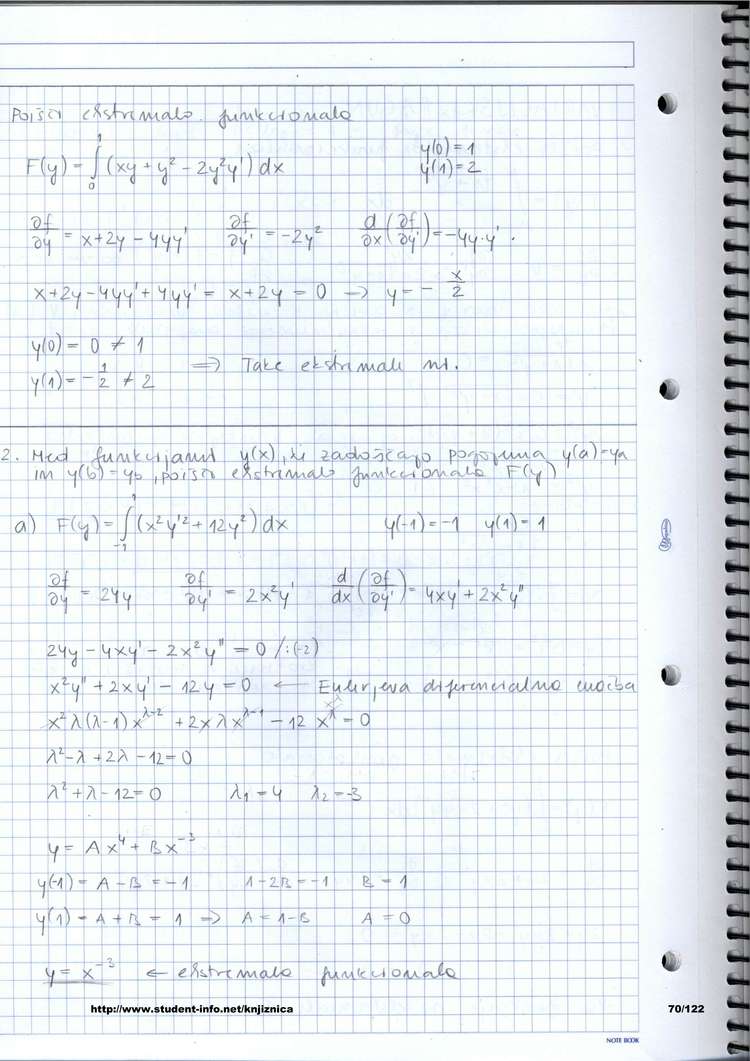 Poišči ekstremalo funkcionala
F(y) = ∫₀¹ (xy + y² - 2y²y') dx    y(0) = 1
y(1) = 2
∂f/∂y = x + 2y - 4yy'    ∂f/∂y' = -2y²    d/∂x (∂f/∂y') = -4y·y'.
x + 2y - 4yy' + 4yy' = x + 2y = 0 → y = - x/2
y(0) = 0 ≠ 1
y(1) = - 1/2 ≠ 2    ⇒ Take ekstremale ni.
2. Med funkcijami y(x), ki zadoščajo pogojema y(a) = ya
in y(b) = yb, poišči ekstremalo funkcionala F(y)
a) F(y) = ∫₋₁¹ (x²y'² + 12y²) dx    y(-1) = -1    y(1) = 1
∂f/∂y = 24y    ∂f/∂y' = 2x²y'    d/dx (∂f/∂y') = 4xy' + 2x²y''
24y - 4xy' - 2x²y'' = 0 /:(-2)
x²y'' + 2xy' - 12y = 0 ← Eulerjeva diferencialna enačba
x² λ(λ-1) x^(λ-2) + 2x λ x^(λ-1) - 12 x^λ = 0
λ² - λ + 2λ - 12 = 0
λ² + λ - 12 = 0    λ₁ = 4    λ₂ = -3
y = Ax⁴ + Bx⁻³
y(-1) = A - B = -1    1 - 2B = -1    B = 1
y(1) = A + B = 1 ⇒ A = 1 - B    A = 0
y = x⁻³ ← ekstremala funkcionala
http://www.student-info.net/knjiznica    70/122
NOTE BOOK